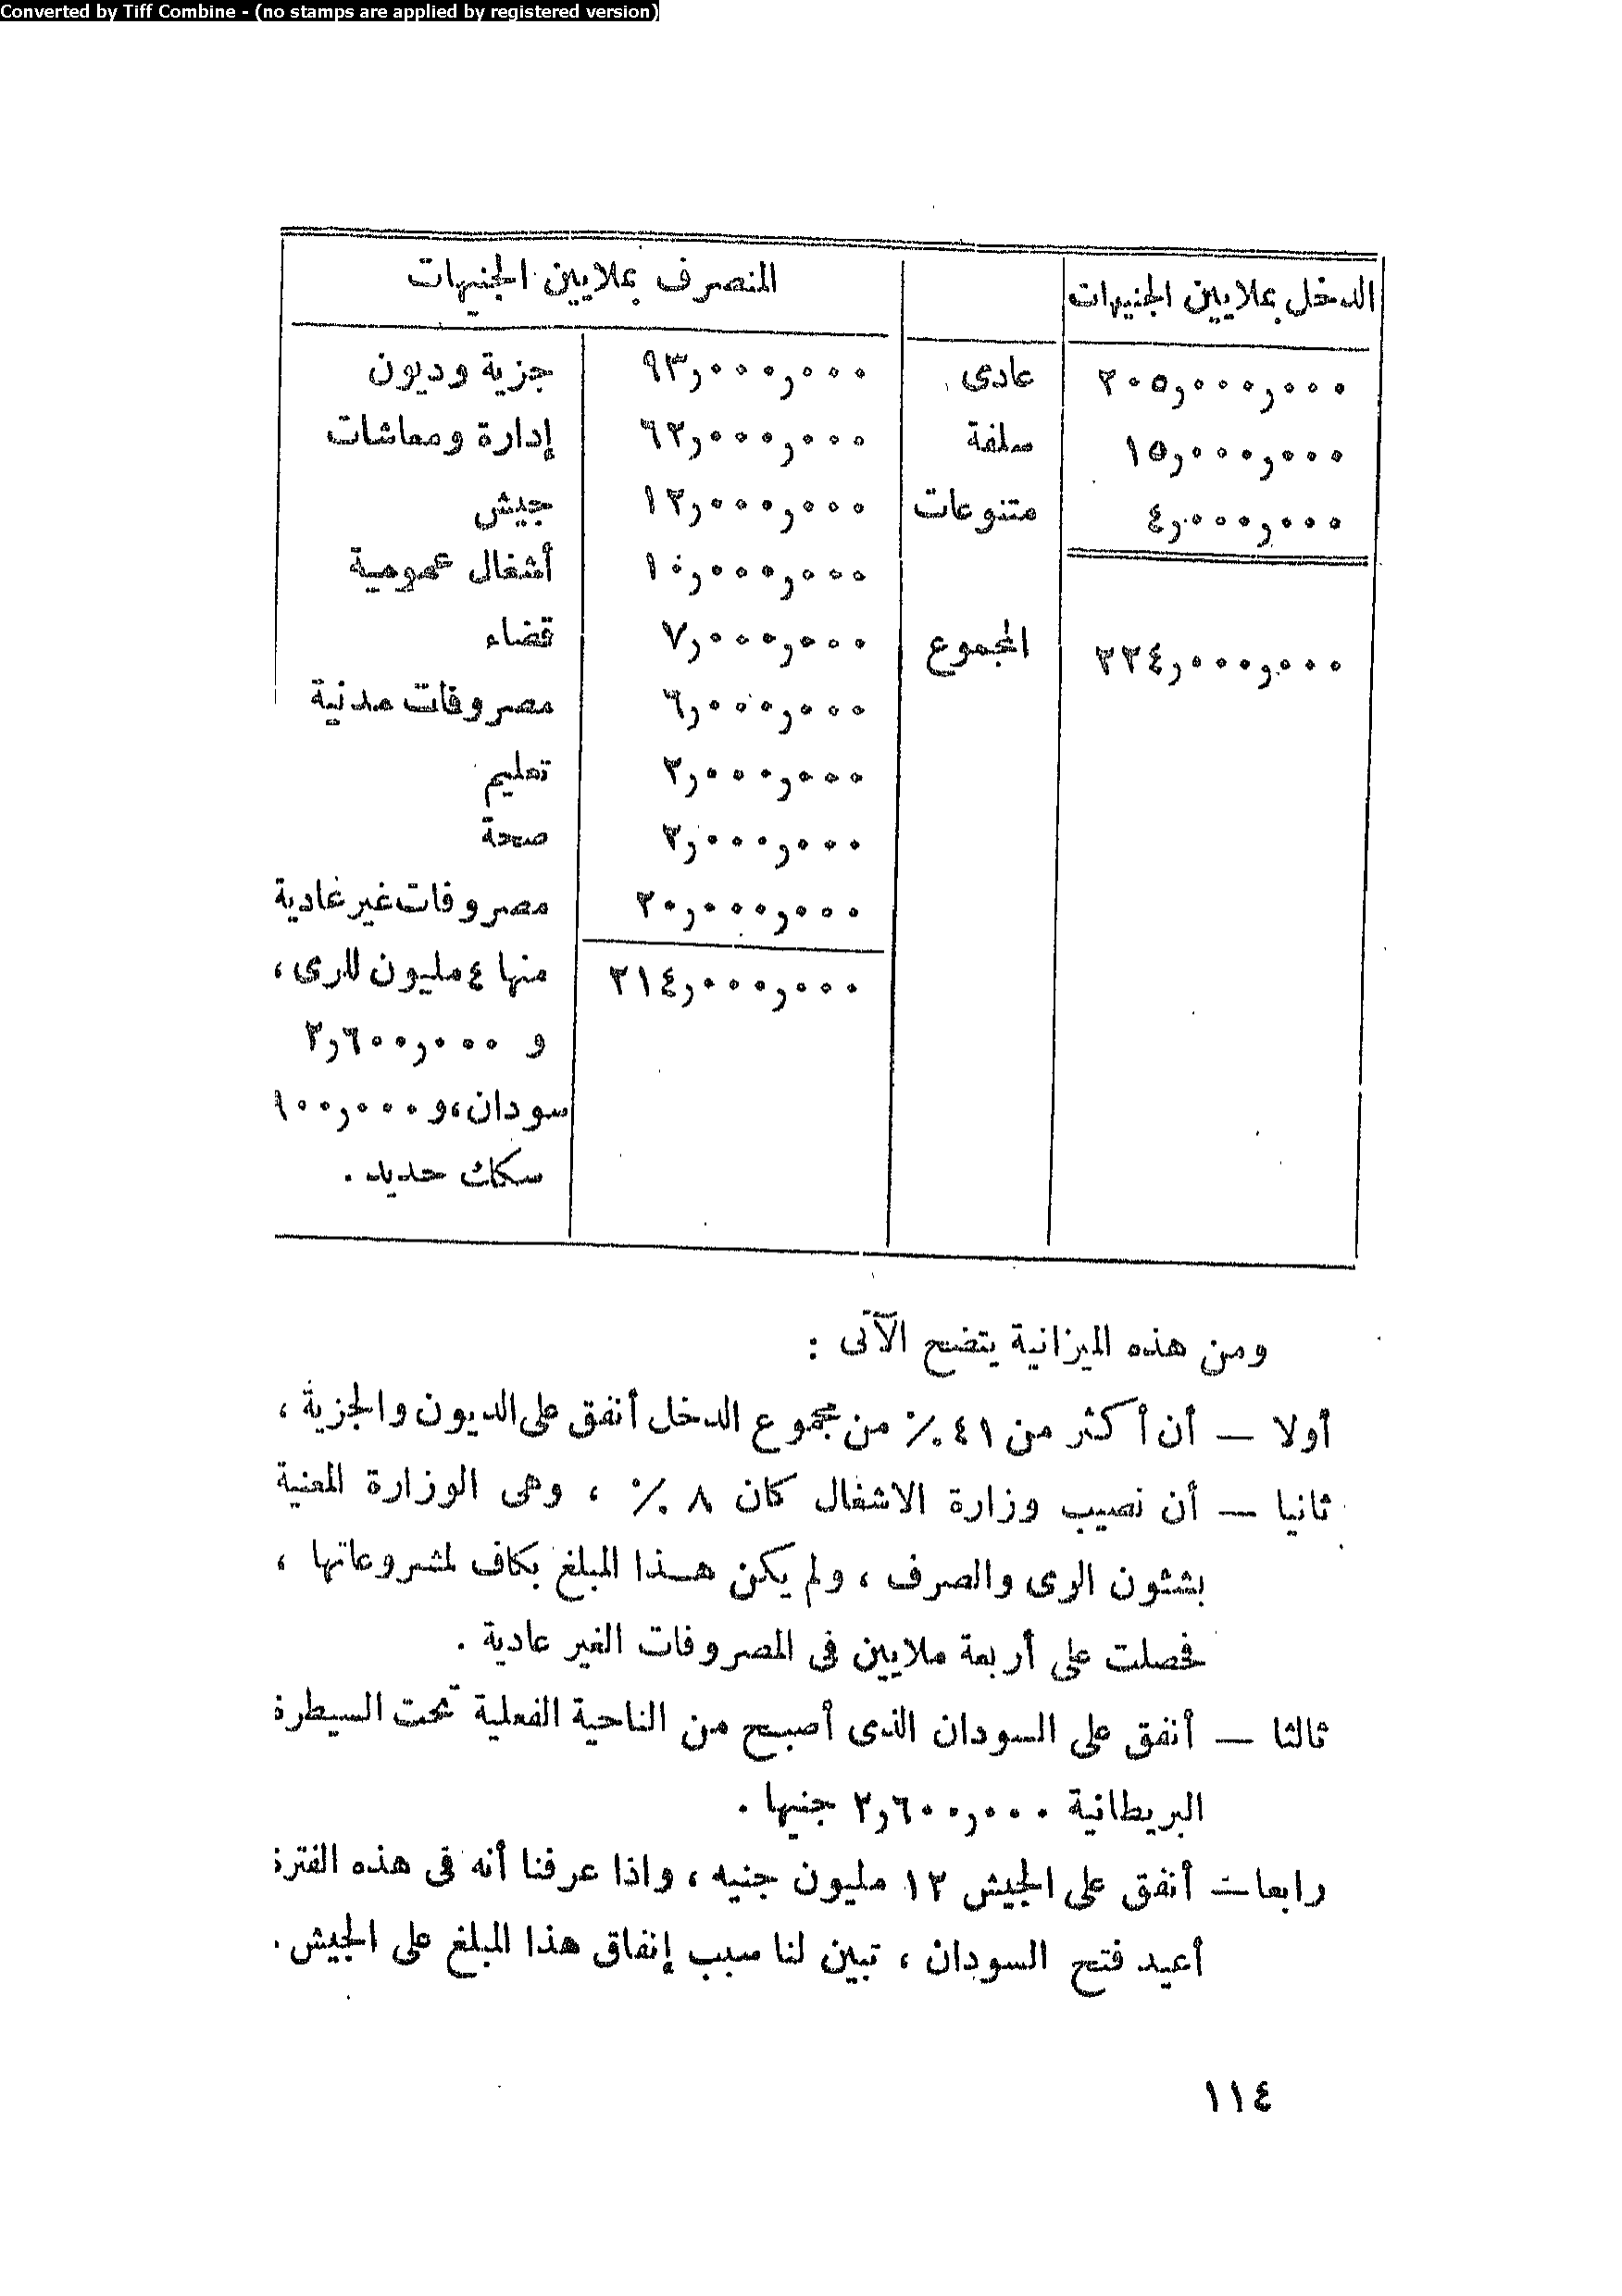 Converted by Tiff Combine - (no stamps are applied by registered version)
الدخل بملايين الجنيهات | | المنصرف بملايين الجنيهات
٢٠٥,٠٠٠,٠٠٠ | عادى | ٩٣,٠٠٠,٠٠٠ | جزية وديون
١٥,٠٠٠,٠٠٠ | سلفة | ٦٢,٠٠٠,٠٠٠ | إدارة ومعاشات
٤,٠٠٠,٠٠٠ | متنوعات | ١٢,٠٠٠,٠٠٠ | جيش
١٠,٠٠٠,٠٠٠ | أشغال عمومية
٢٢٤,٠٠٠,٠٠٠ | المجموع | ٧,٠٠٠,٠٠٠ | قضاء
٦,٠٠٠,٠٠٠ | مصروفات مدنية
٢,٠٠٠,٠٠٠ | تعليم
٢,٠٠٠,٠٠٠ | صحة
٢٠,٠٠٠,٠٠٠ | مصروفات غير عادية
٢١٤,٠٠٠,٠٠٠ | منها ٤ مليون للرى ،
و ٢,٦٠٠,٠٠٠
سودان، و ٩٠٠,٠٠٠
سكك حديد .
ومن هذه الميزانية يتضح الآتى :
أولا — أن أكثر من ٤١ ٪ من مجموع الدخل أنفق على الديون والجزية ،
ثانيا — أن نصيب وزارة الاشغال كان ٨ ٪ ، وهى الوزارة المعنية
بشئون الرى والصرف ، ولم يكن هذا المبلغ بكاف لمشروعاتها ،
فحصلت على أربعة ملايين فى المصروفات الغير عادية .
ثالثا — أنفق على السودان الذى أصبح من الناحية الفعلية تحت السيطرة
البريطانية ٢,٦٠٠,٠٠٠ جنيها .
رابعا — أنفق على الجيش ١٢ مليون جنيه ، واذا عرفنا أنه فى هذه الفترة
أعيد فتح السودان ، تبين لنا سبب إنفاق هذا المبلغ على الجيش .
١١٤